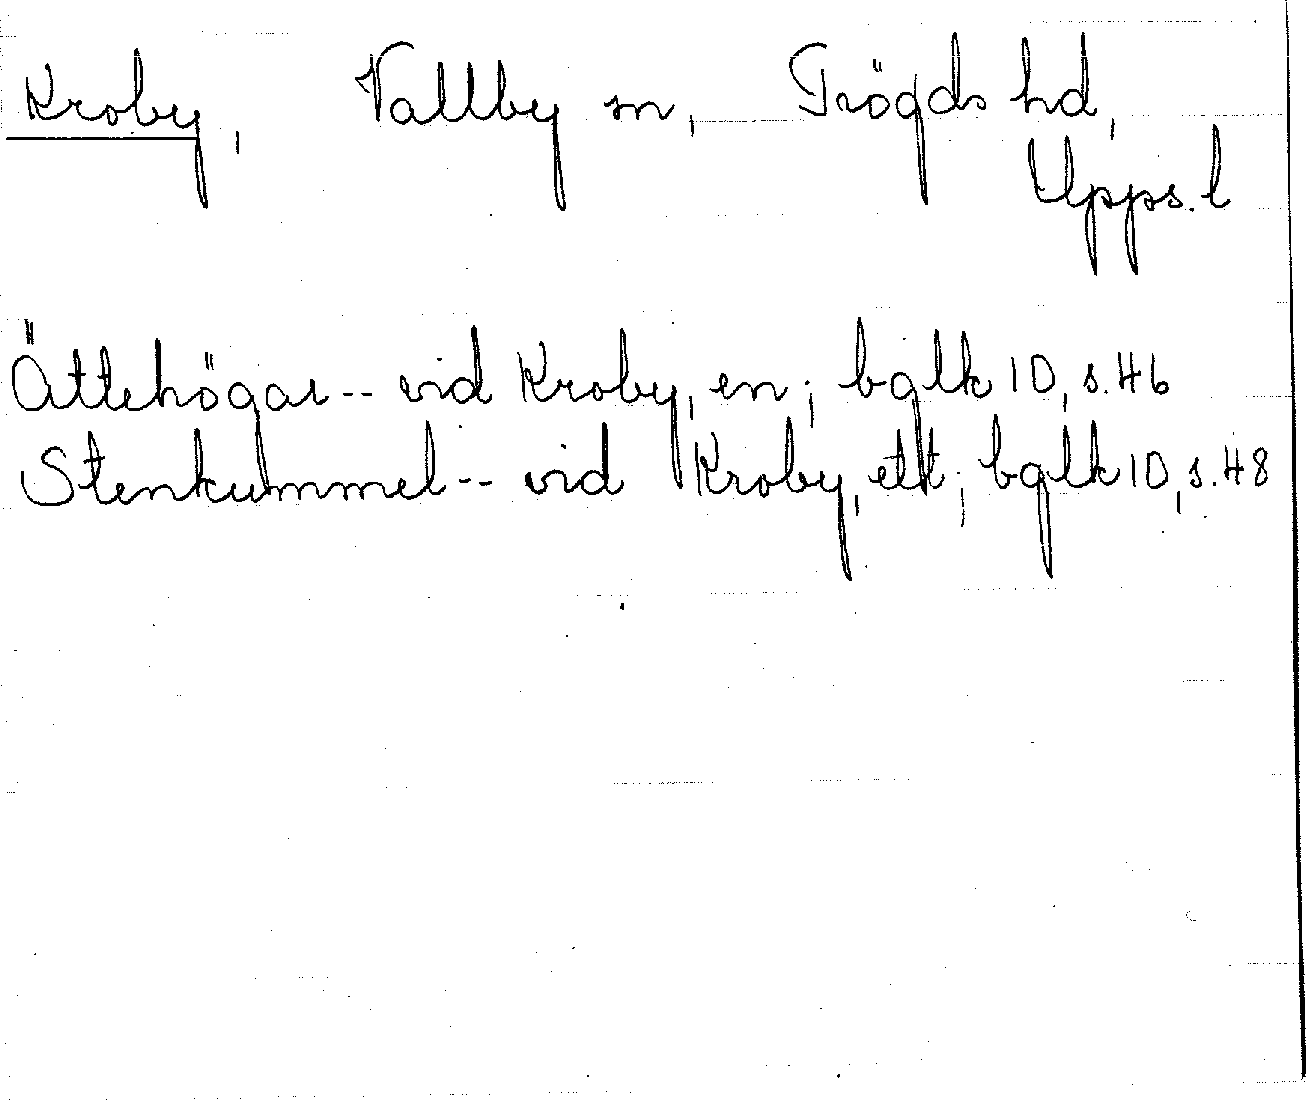 Kroby, Vallby sn, Trögds hd,
Upps. l
Ättehögar -- vid Kroby, en; bglk 10, s. 46
Stenkummel -- vid Kroby, ett; bglk 10, s. 48